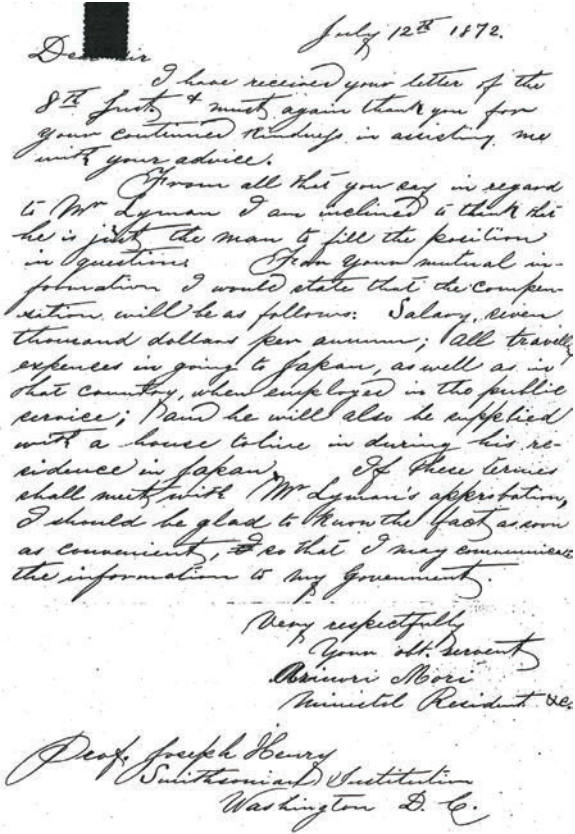 July 12th 1872.
Dear Sir
I have received your letter of the
8th Inst, & must again thank you for
your continued kindness in assisting me
with your advice.
From all that you say in regard
to Mr Lyman I am inclined to think that
he is just the man to fill the position
in question. From your mutual in-
formation I would state that the compen-
sation will be as follows: Salary, seven
thousand dollars per annum; all travelling
expenses in going to Japan, as well as in
that country, when employed in the public
service; and he will also be supplied
with a house to live in during his re-
sidence in Japan. If these terms
shall meet with Mr Lyman's approbation,
I should be glad to know the fact as soon
as convenient, so that I may communicate
the information to my Government.
Very respectfully
Your obt. servent
Arinori Mori
Minister Resident &c.
Prof. Joseph Henry
Smithsonian Institution
Washington D. C.